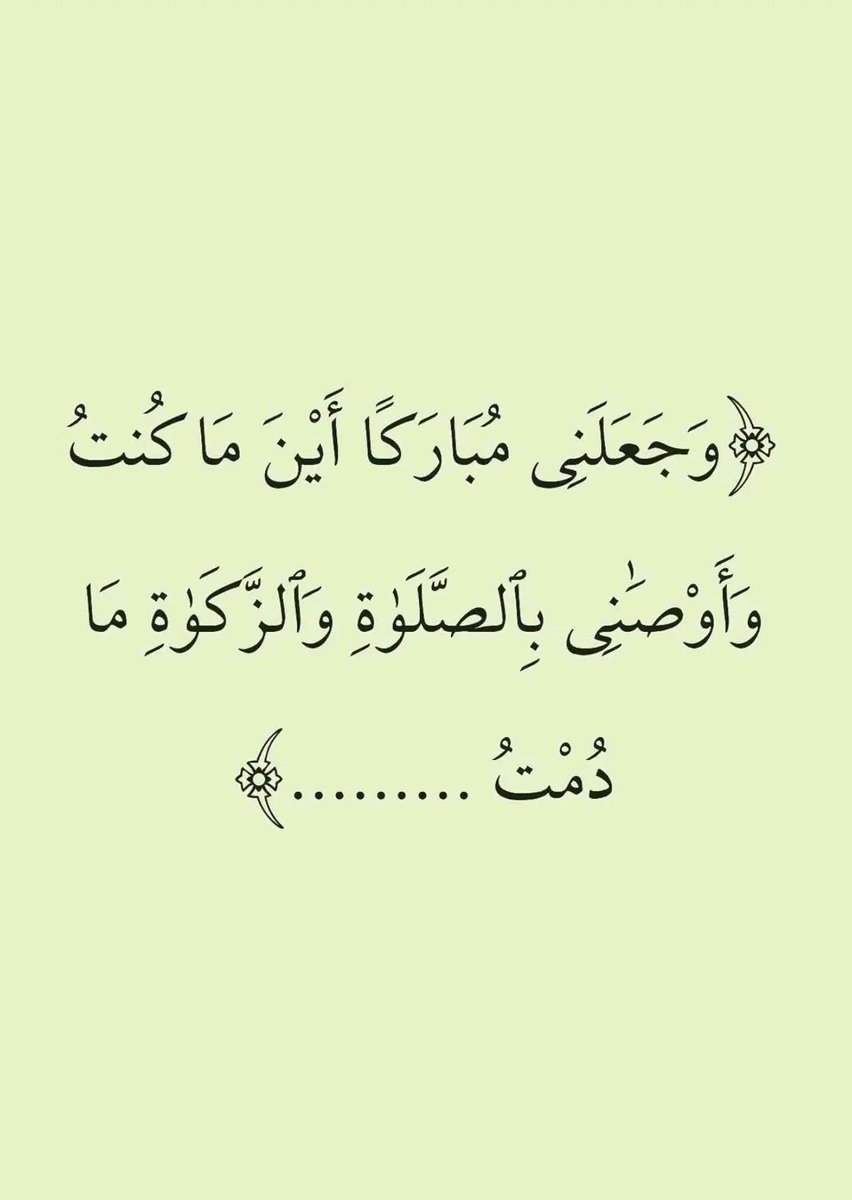 ﴿وَجَعَلَنِى مُبَارَكًا أَيْنَ مَا كُنتُ
وَأَوْصَـٰنِى بِٱلصَّلَوٰةِ وَٱلزَّكَوٰةِ مَا
دُمْتُ .........﴾